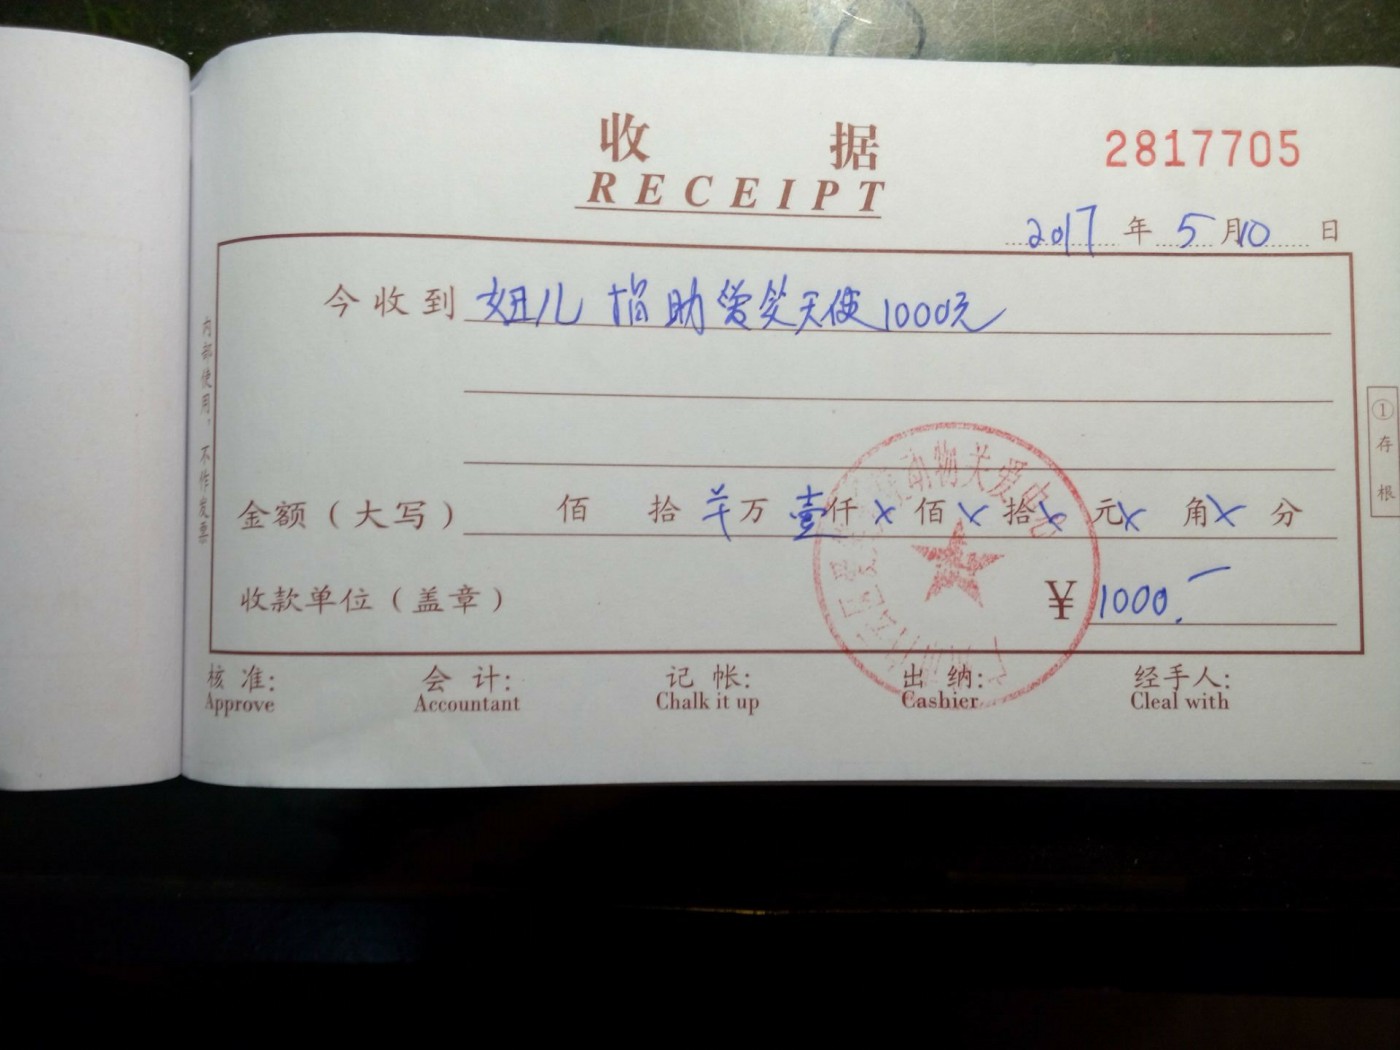 收 据
RECEIPT
2817705
2017 年 5 月 10 日
今收到 妞儿 捐助爱笑天使1000元
金额（大写） 佰 拾 万 壹仟 x 佰 x 拾 x 元 x 角 x 分
收款单位（盖章） ¥ 1000.
核 准: 会 计: 记 帐: 出 纳: 经手人:
Approve Accountant Chalk it up Cashier Cleal with
内部使用，不作发票
①存根
动物关爱中心